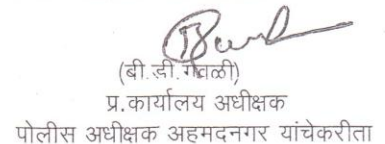 (बी.डी.गवळी)
प्र.कार्यालय अधीक्षक
पोलीस अधीक्षक अहमदनगर यांचेकरीता